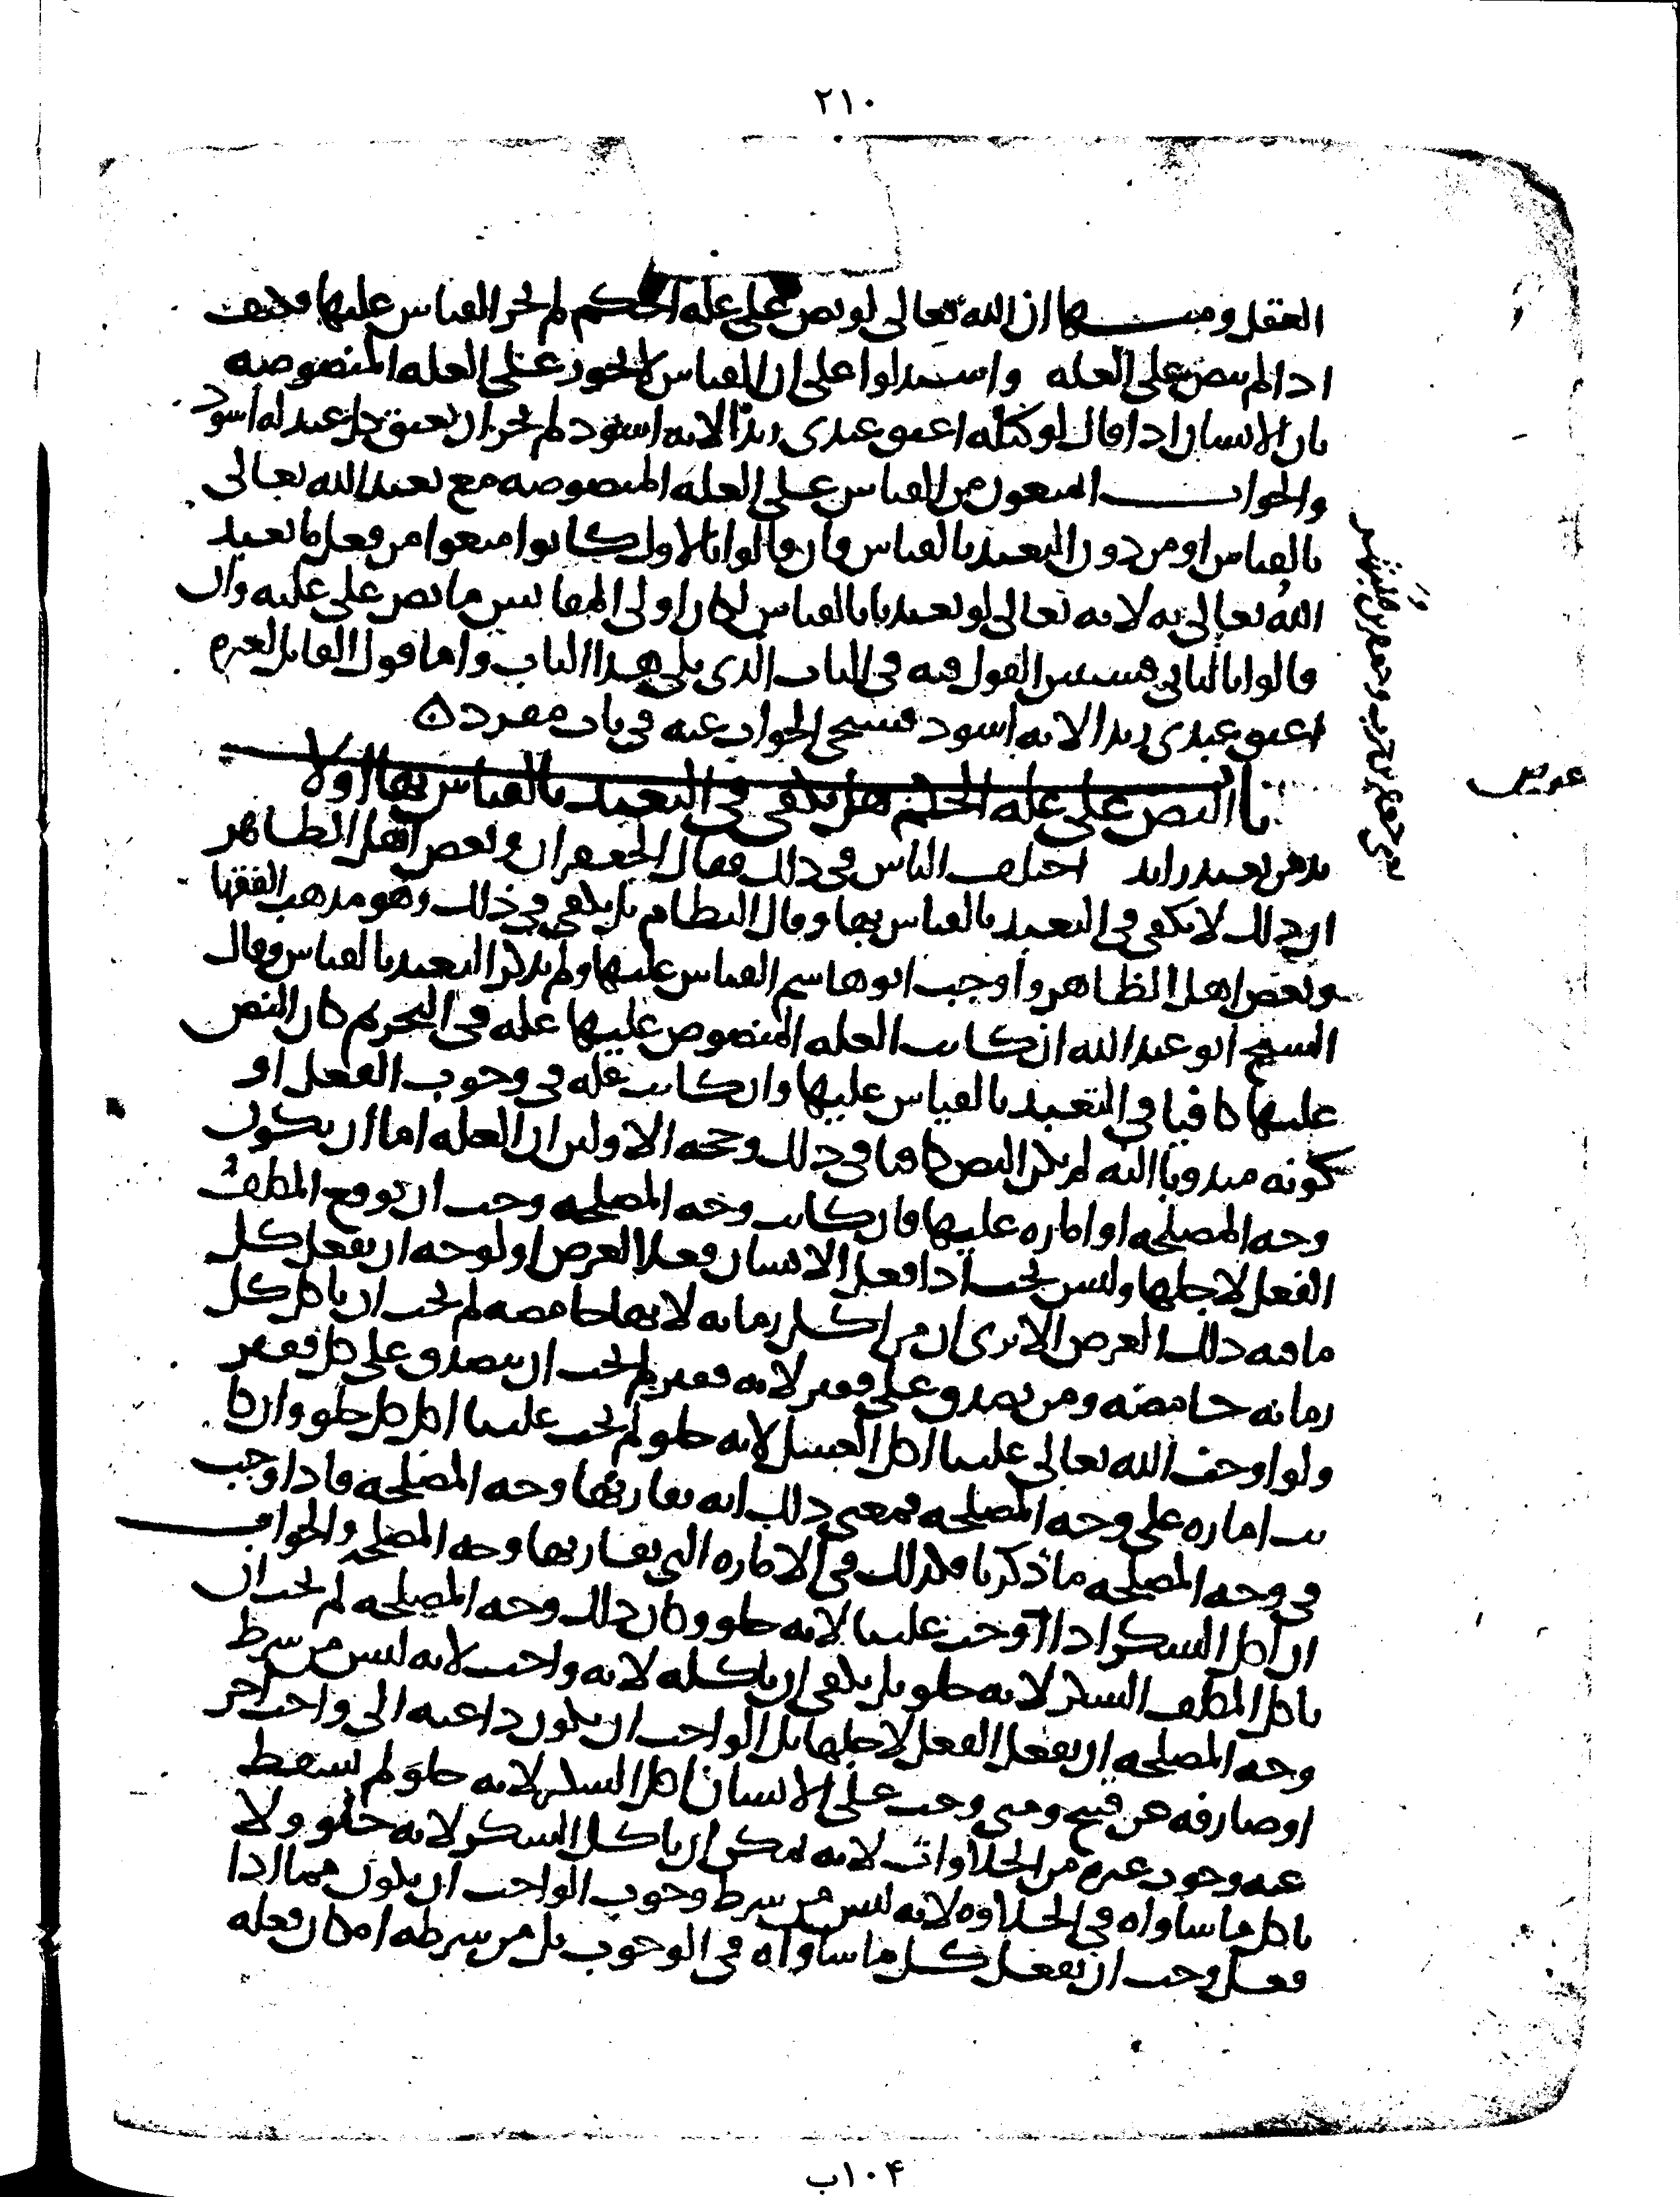 ٢١٠
العقل ومنها ان الله تعالى لو نص على علة الحكم لم يجز القياس عليها فكيف
اذا لم ينص على العله واستدلوا على ان القياس لا يجوز على العله المنصوصه
بان الانسان اذا قال لوكيله اعتق عبدى زيدا لانه اسود لم يجز ان يعتق كل عبد له اسود
والجواب اتمنعون من القياس على العله المنصوصه مع تعبد الله تعالى
بالقياس او من دون التعبد بالقياس فان قالوا بالاول كانوا منعوا من فعل ما تعبد
الله تعالى به لانه تعالى لو تعبدنا بالقياس لكان اولى المقاييس ما نص على علته وان
قالوا بالثانى فسنبين القول فيه فى الباب الذى يلى هذا الباب واما قول القائل لغيره
اعتق عبدى زيدا لانه اسود فسيجى الجواب عنه فى باب مفرد ٥
باب النص على علة الحكم هل يكفى فى التعبد بالقياس بها او لا
بد من تعبد زايد اختلف الناس فى ذلك فقال الجعفران وبعض اهل الظاهر
ان ذلك لا يكفى فى التعبد بالقياس بها وقال النظام بل يكفى فى ذلك وهو مذهب الفقها
وبعض اهل الظاهر واوجب ابو هاشم القياس عليها ولم يذكر التعبد بالقياس وقال
الشيخ ابو عبد الله ان كانت العله المنصوص عليها علة فى التحريم كان النص
عليها كافيا فى التعبد بالقياس عليها وان كانت علة فى وجوب الفعل او
كونه مندوبا اليه لم يكن النص كافيا فى ذلك وحجه الاولين ان العله اما ان يكون
وجه المصلحه او اماره عليها فان كانت وجه المصلحه وجب ان توقع المكلف
الفعل لاجلها وليس يجب اذا فعل الانسان فعلا لغرض او لوجه ان يفعل كل
ما فيه ذلك الغرض الا ترى ان من اكل رمانه لانها حامضه لم يجب ان ياكل كل
رمانه حامضه ومن تصدق على فقير لانه فقير لم يجب ان يتصدق على كل فقير
ولو اوجب الله تعالى علينا اكل العسل لانه حلو لم يجب علينا اكل كل حلو وان كا
نت اماره على وجه المصلحه فمعنى ذلك انه يقارنها وجه المصلحه فاذا وجب
فى وجه المصلحه ما ذكرنا فكذلك فى الاماره التى يقارنها وجه المصلحه والجواب
ان اكل السكر اذا اوجب علينا لانه حلو وكان ذلك وجه المصلحه لم يجب ان
ياكل المكلف السكر لانه حلو بل يكفى ان ياكله لانه واجب لانه ليس من شرط
وجه المصلحه ان يفعل الفعل لاجلها بل الواجب ان يكون داعيه الى واجب اخر
او صارفه عن قبيح ومتى وجب على الانسان اكل السكر لانه حلو لم يسقط
عنه وجود غيره من الحلاوات لانه يمكن ان ياكل السكر لانه حلو ولا
ياكل ما ساواه فى الحلاوه لانه ليس من شرط وجوب الواجب ان يكون مما اذا
فعل وجب ان يفعل كل ما ساواه فى الوجوب بل من شرطه امكان فعله
١٠۴ب